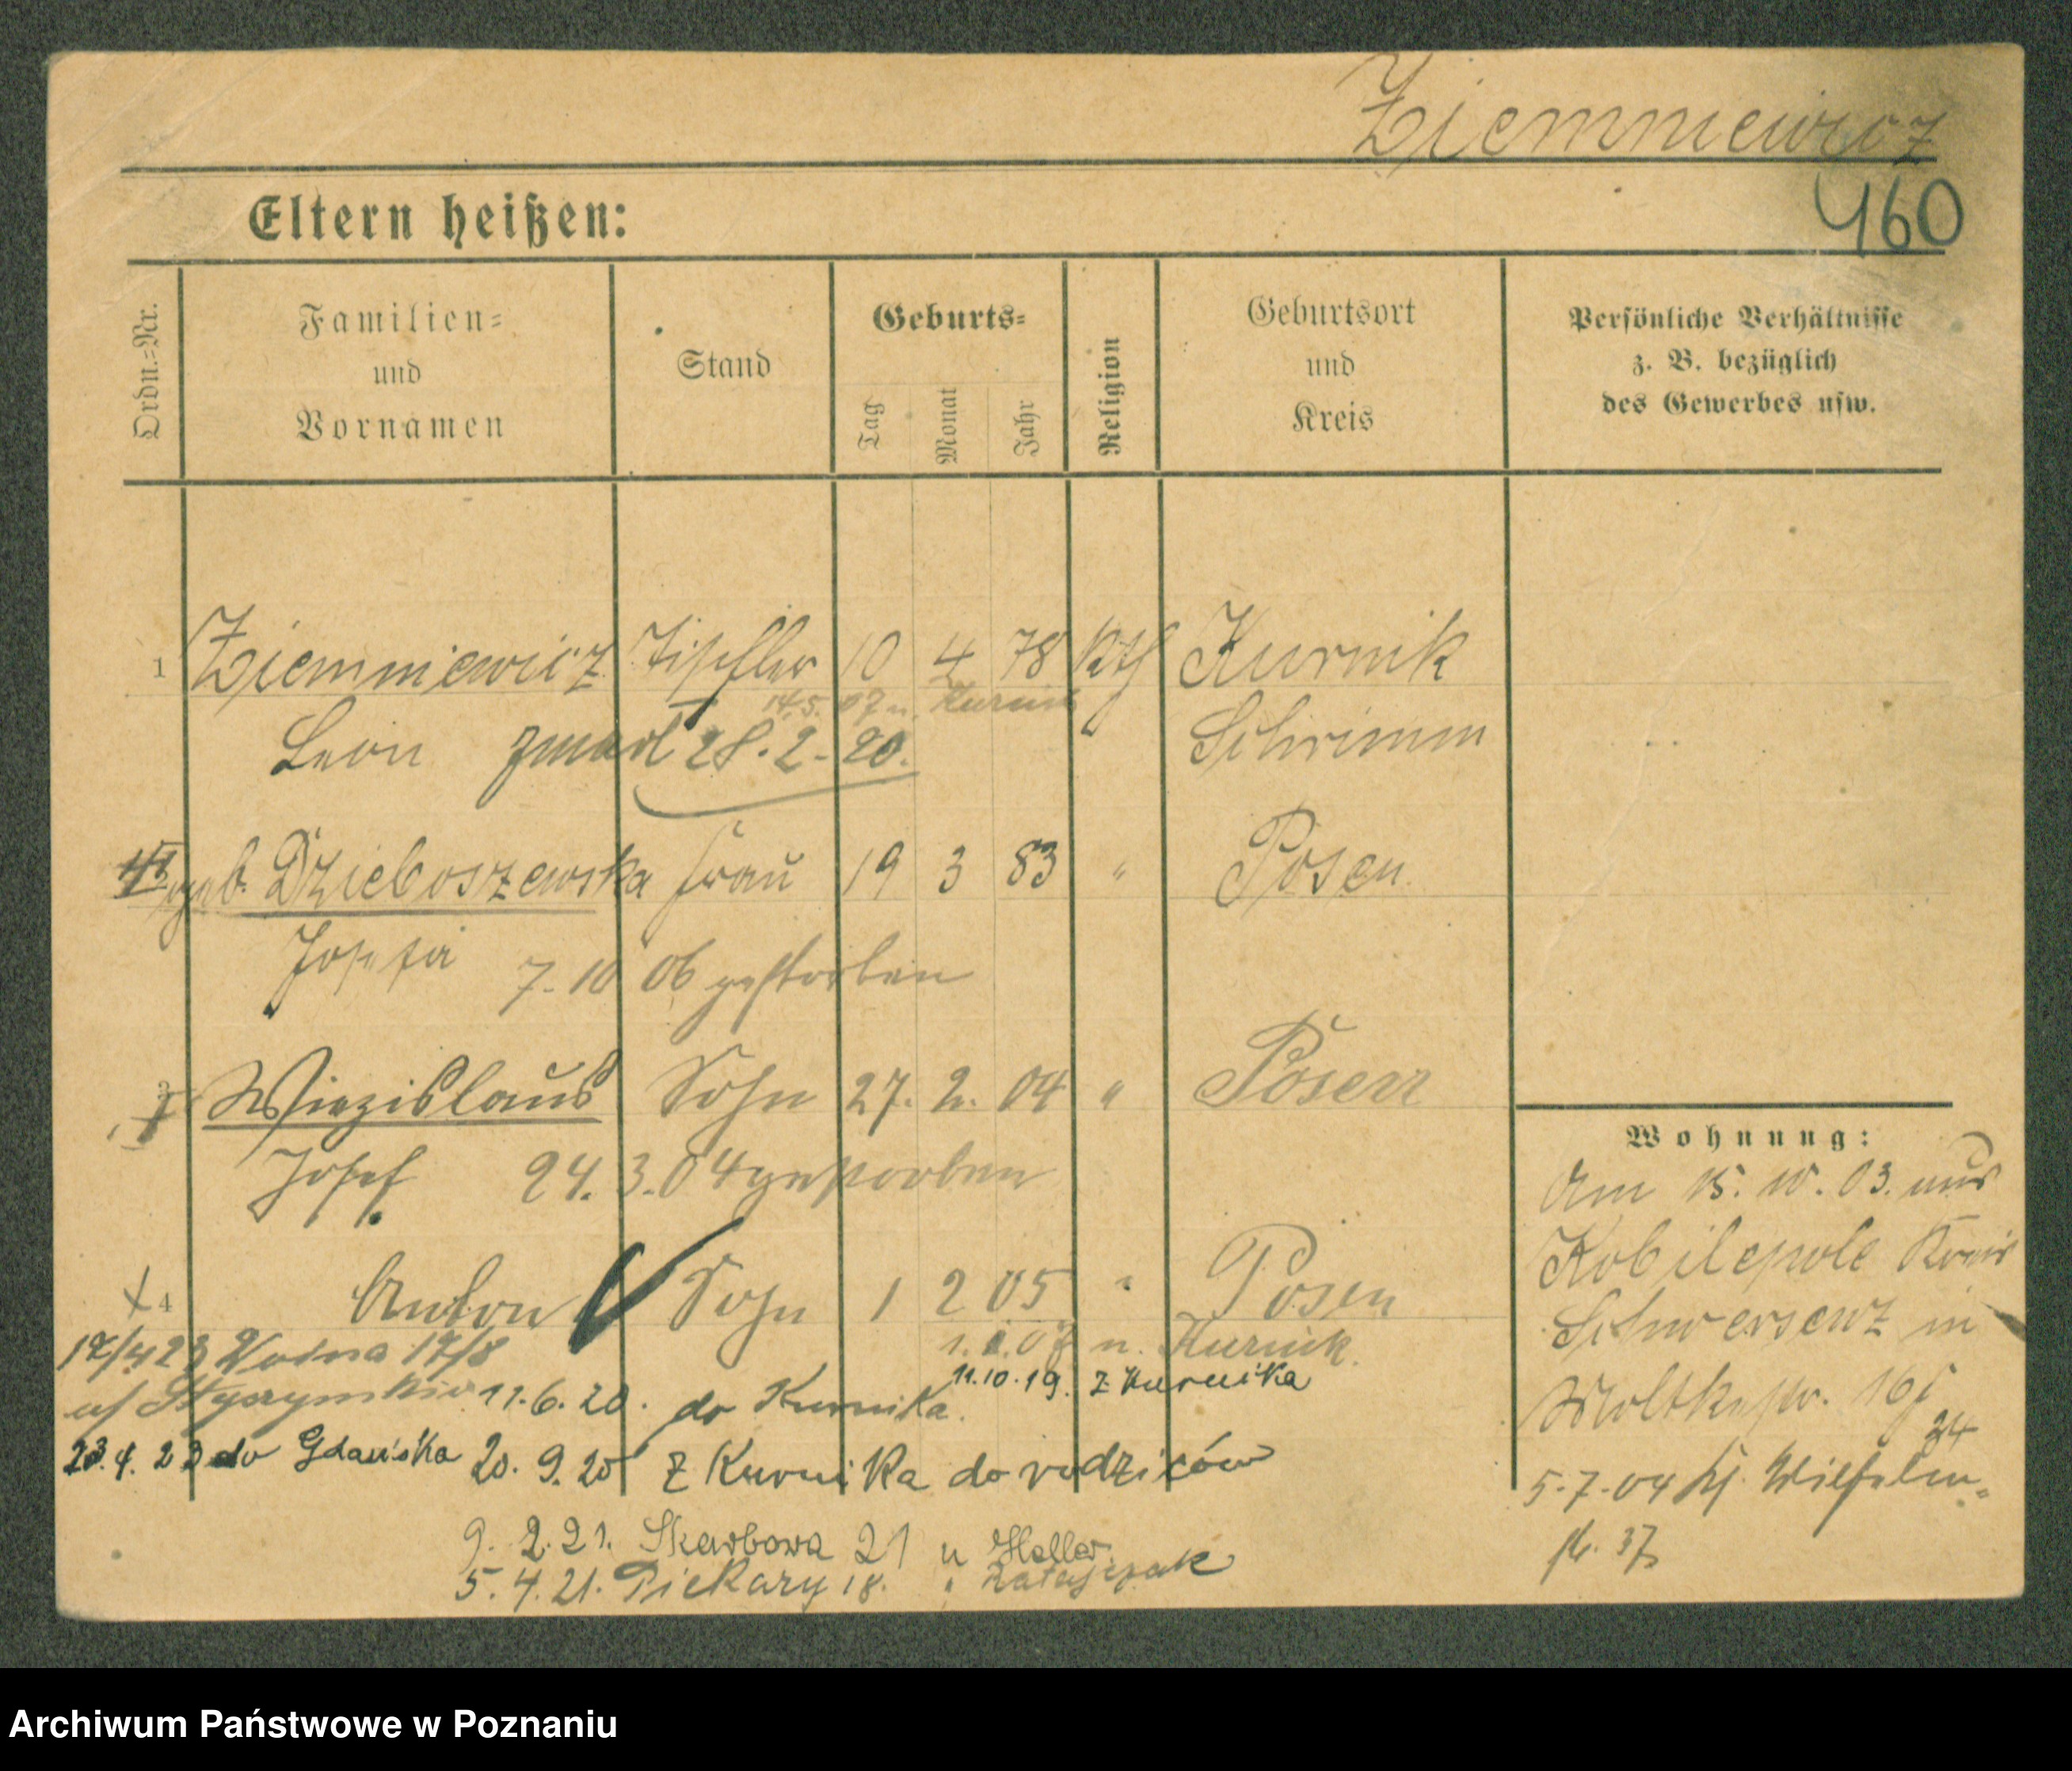 Ziemniewicz
460
Eltern heißen:
Ordn.=Nr.
Familien=
und
Vornamen
Stand
Geburts=
Tag
Monat
Jahr
Religion
Geburtsort
und
Kreis
Persönliche Verhältnisse
z. B. bezüglich
des Gewerbes usw.
1 Ziemniewicz Tischler 10 4 78 kth Kurnik
14.5.07 n. Kurnik
Leon zmarł 28.2.20. Schrimm
geb. Dzieboszewska Frau 19 3 83 " Posen
Josefa 7.10 06 gestorben
3 Sohn 27. 2. 04 " Posen
Josef 24.3.04 gestorben
4 Anton Sohn 1 2 05 " Posen
n. Kurnik.
11.10.19. z Kurnika
17/4 23 Wodna 17/8
11.6.20. do Kurnika.
23.4.23 do Gdańska
20.9.20 z Kurnika do rodziców
9.2.21. Skarbowa 21 u Heller
5.4.21. Piekary 18. " Ratajczak
Wohnung:
Am 15.10.03. aus
Kobilepole Kreis
Schwersenz in
Moltkestr. 16
24
5.7.04 Wilhelm-
str. 37
Archiwum Państwowe w Poznaniu